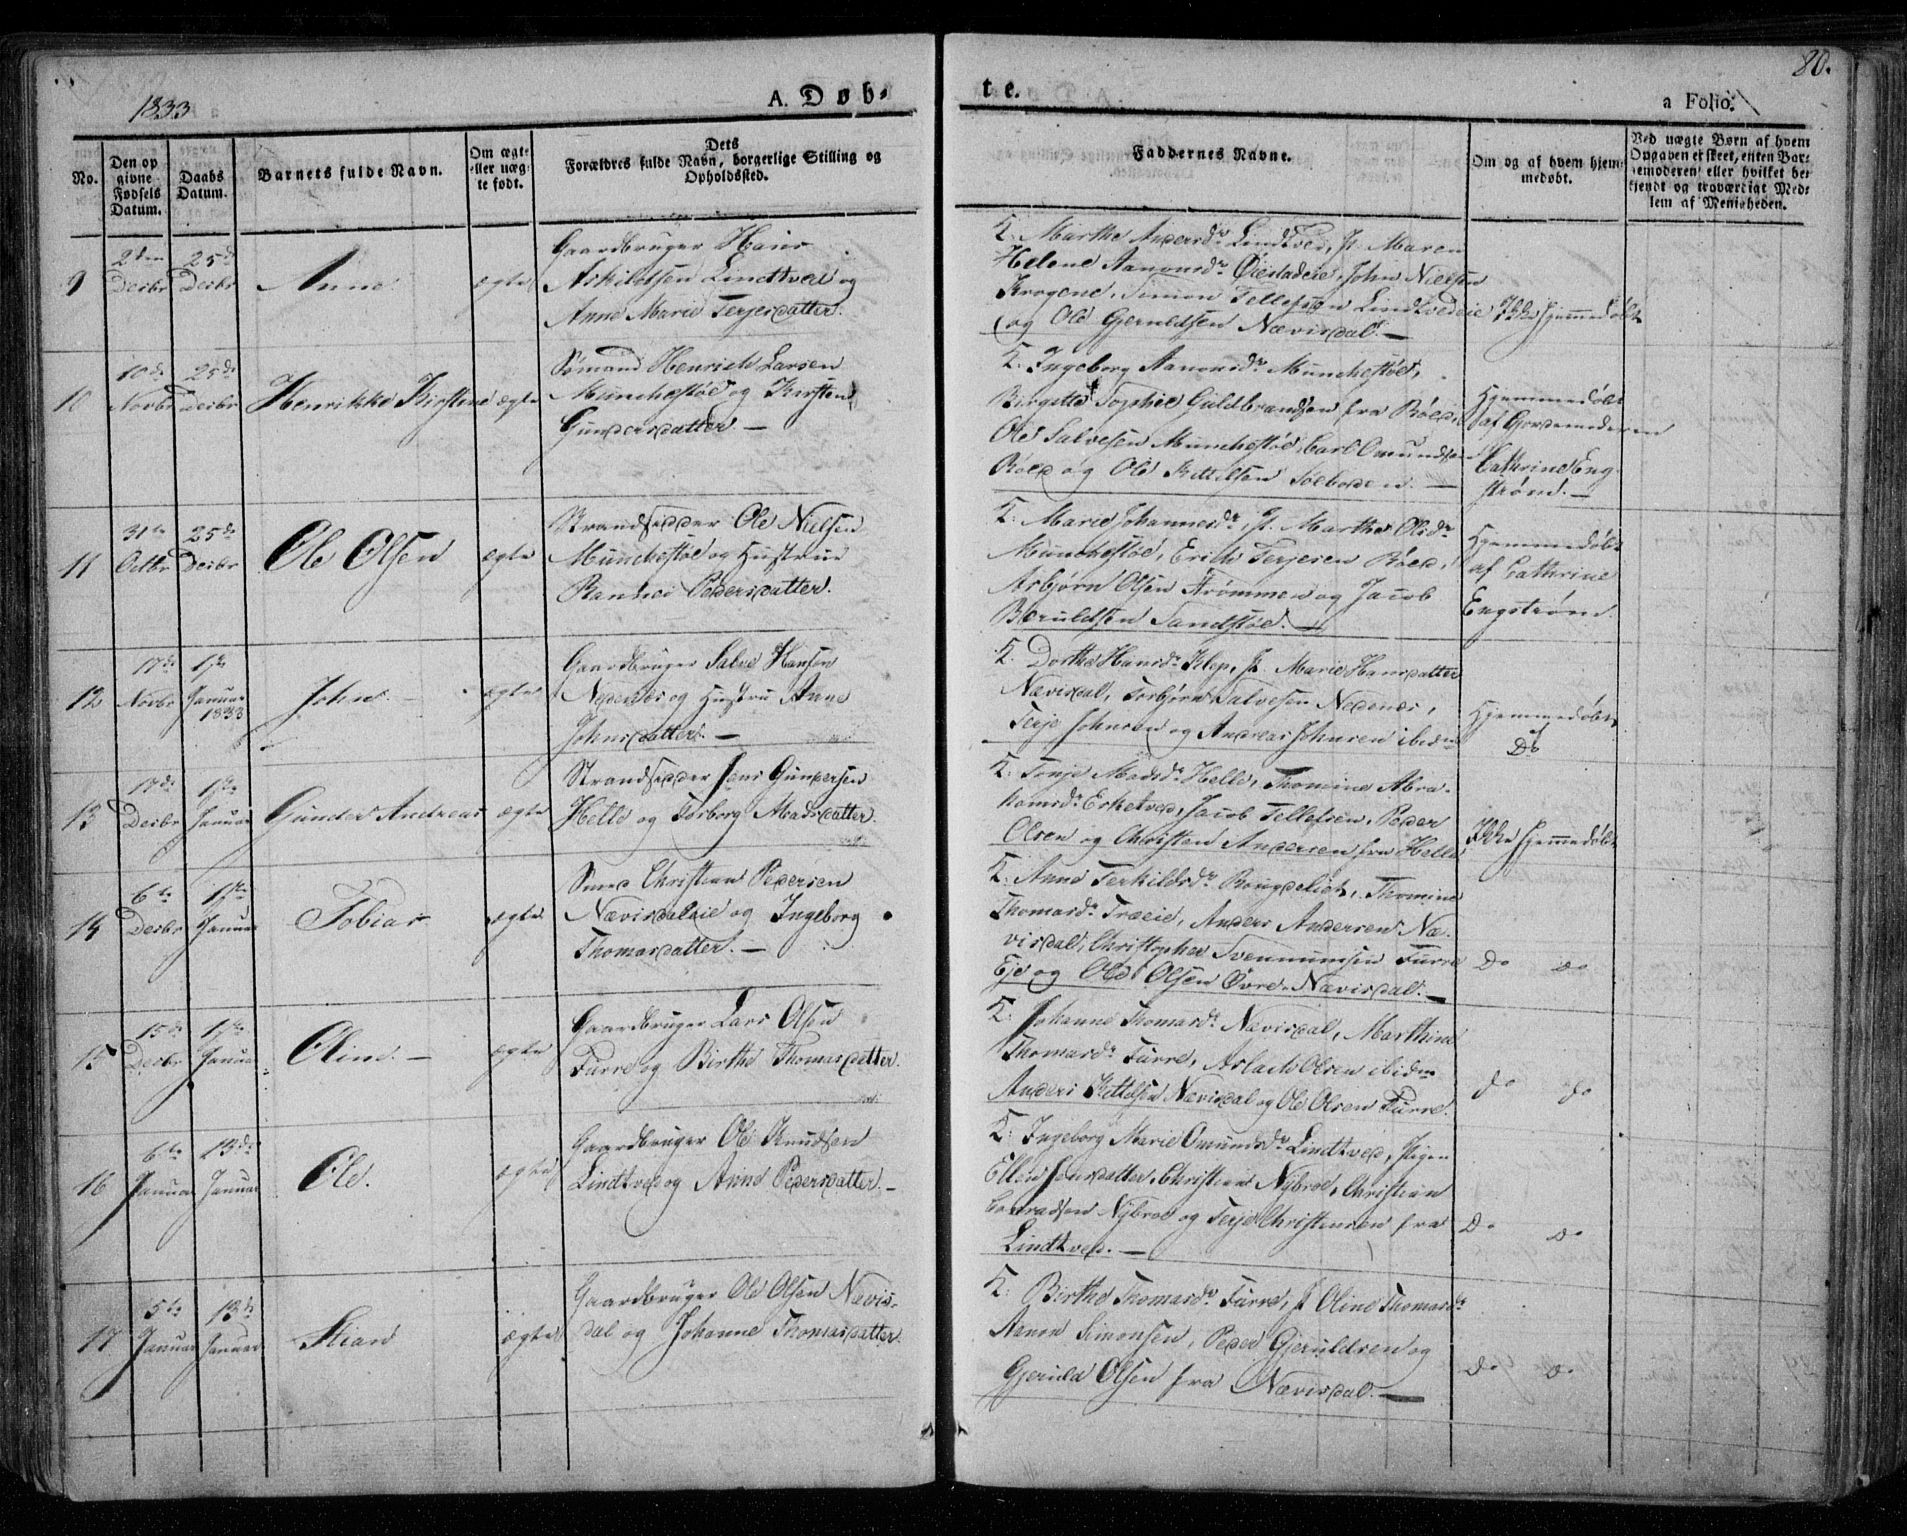 1833
A. Døb-
te.
80.
a Folio.
No.
Den op
givne
Fødsels
Datum.
Daabs
Datum.
Barnets fulde Navn.
Om ægte
eller uæg-
te født.
Dets
Forældres fulde Navn, borgerlige Stilling og
Opholdssted.
Faddernes Navne.
Om og af hvem hjem-
medøbt.
Ved uægte Børn af hvem
Opgaven er skeet, enten Bar-
nemoderen eller hvilket be-
kjendt og troværdigt Med-
lem af Menigheden.
9
2den
Desbr
25de
Desbr
Anne
ægte
Gaardbruger Hans
Askildsen Lindtved og
Anne Marie Terjesdatter.
K: Marthe Andersdr Lindtved, P. Maren
Helene Aanonsdr Øiestadeie, John Nielsen
Krogene, Simon Tellefsen Lindtvedeie
og Ole Gjeruldsen Nævisdal. —
Ikke hjemmedøbt
10
10de
Novbr
25de
Desbr
Henrikke Kirstine
ægte
Sømand Henrich Larsen
Munchestøe og Kirsten
Gundersdatter —
K: Ingeborg Aanonsdr Munchestøe,
Birgitte Sophie Guldbrandsen fra Røed,
Ole Salvesen Munchestøe, Carl Omundsen
Røed og Ole Kittilsen Solborden. —
Hjemmedøbt
af Gjordemoderen
Cathrine Eng-
strøm. —
11
31te
Octbr
25de
Desbr
Ole Olsen
ægte
Strandsidder Ole Nielsen
Munchestøe og Hustrue
Rannei Pedersdatter.
K: Marie Johannesdr, P. Marthe Olsdr
Munchestøe, Erich Terjesen Røed,
Asbjørn Olsen Strømmen og Jacob
Bæruldsen Sandstøe. —
Hjemmedøbt
af Cathrine
Engstrøm.
12
17de
Novbr
1ste
Januar
1833
John. —
ægte
Gaardbruger Salve Hansen
Nedenes og Hustru Anne
Johnsdatter. —
K. Dorthe Hansdr Klep, P. Marie Hansdatter
Nævisdal, Torbjørn Salvesen Nedenæs,
Terje Johnsen og Andreas Johnsen ibidm
Hjemmedøbt
af
Do
13
17de
Desbr
1ste
Januar
Gunder Andreas
ægte
Strandsidder Jens Gundersen
Helle og Torborg Madsdatter.
K: Tonje Madsdr Helle, Thomine Abra-
hamsdr Esketved, Jacob Tellefsen, Peder
Olsen og Christen Andersen fra Helle
Ikke hjemmedøbt
14
6te
Desbr
1ste
Januar
Tobias
ægte
Smed Christian Pedersen
Nævisdaleie og Ingeborg
Thomasdatter. —
K: Anne Terkildsdr Bougdeliet, Thomine
Thomasdr Træeie, Anders Andersen Næ-
visdal, Christopher Svenningsen Furre
Eje og Ole Olsen Øvre-Nævisdal. —
Do Do
15
15de
Desbr
1ste
Januar
Oline. —
ægte
Gaardbruger Lars Olsen
Furre og Birthe Thomasdatter.
K: Johanne Thomasdr Nævisdal, Marthine
Thomasdr Furre, Aslach Olsen ibidm
Anders Kittelsen Nævisdal og Ole Olsen Furre.
Do Do
16
6te
Januar
13de
Januar
Ole.
ægte
Gaardbruger Ole Knudsen
Lindtved og Anne Pedersdatter. —
K: Ingeborg Marie Omundsdr Lindtved, Pigen
Ellen Jensdatter, Christian Nybroe, Christian
Conradsen Nybroe og Terje Christensen fra
Lindtved. —
Do Do
17
5te
Januar
13de
Januar
Stian
ægte
Gaardbruger Ole Olsen Nævis-
dal og Johanne Thomasdatter.
K: Birthe Thomasdr Furre, P. Oline Thomasdr
Aanon Simonsen, Peder Gjeruldsen og
Gjeruld Olsen fra Nævisdal. —
Do Do